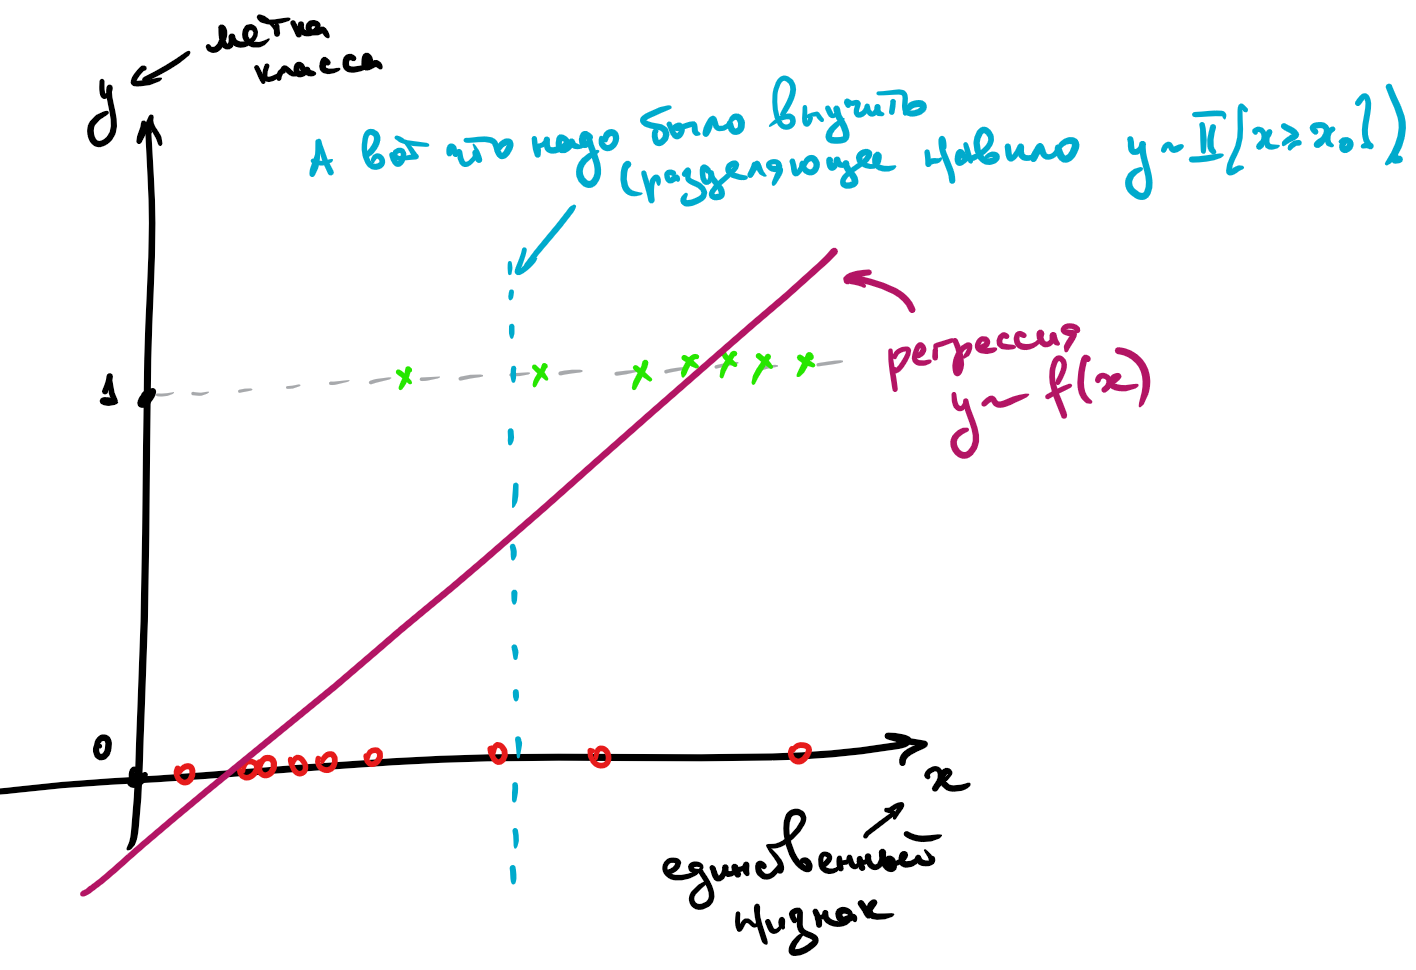 метка
класса
y
А вот что надо было выучить
(разделяющее правило y ~ II[x ≥ x₀])
регрессия
y ~ f(x)
1
0
x
единственный
признак